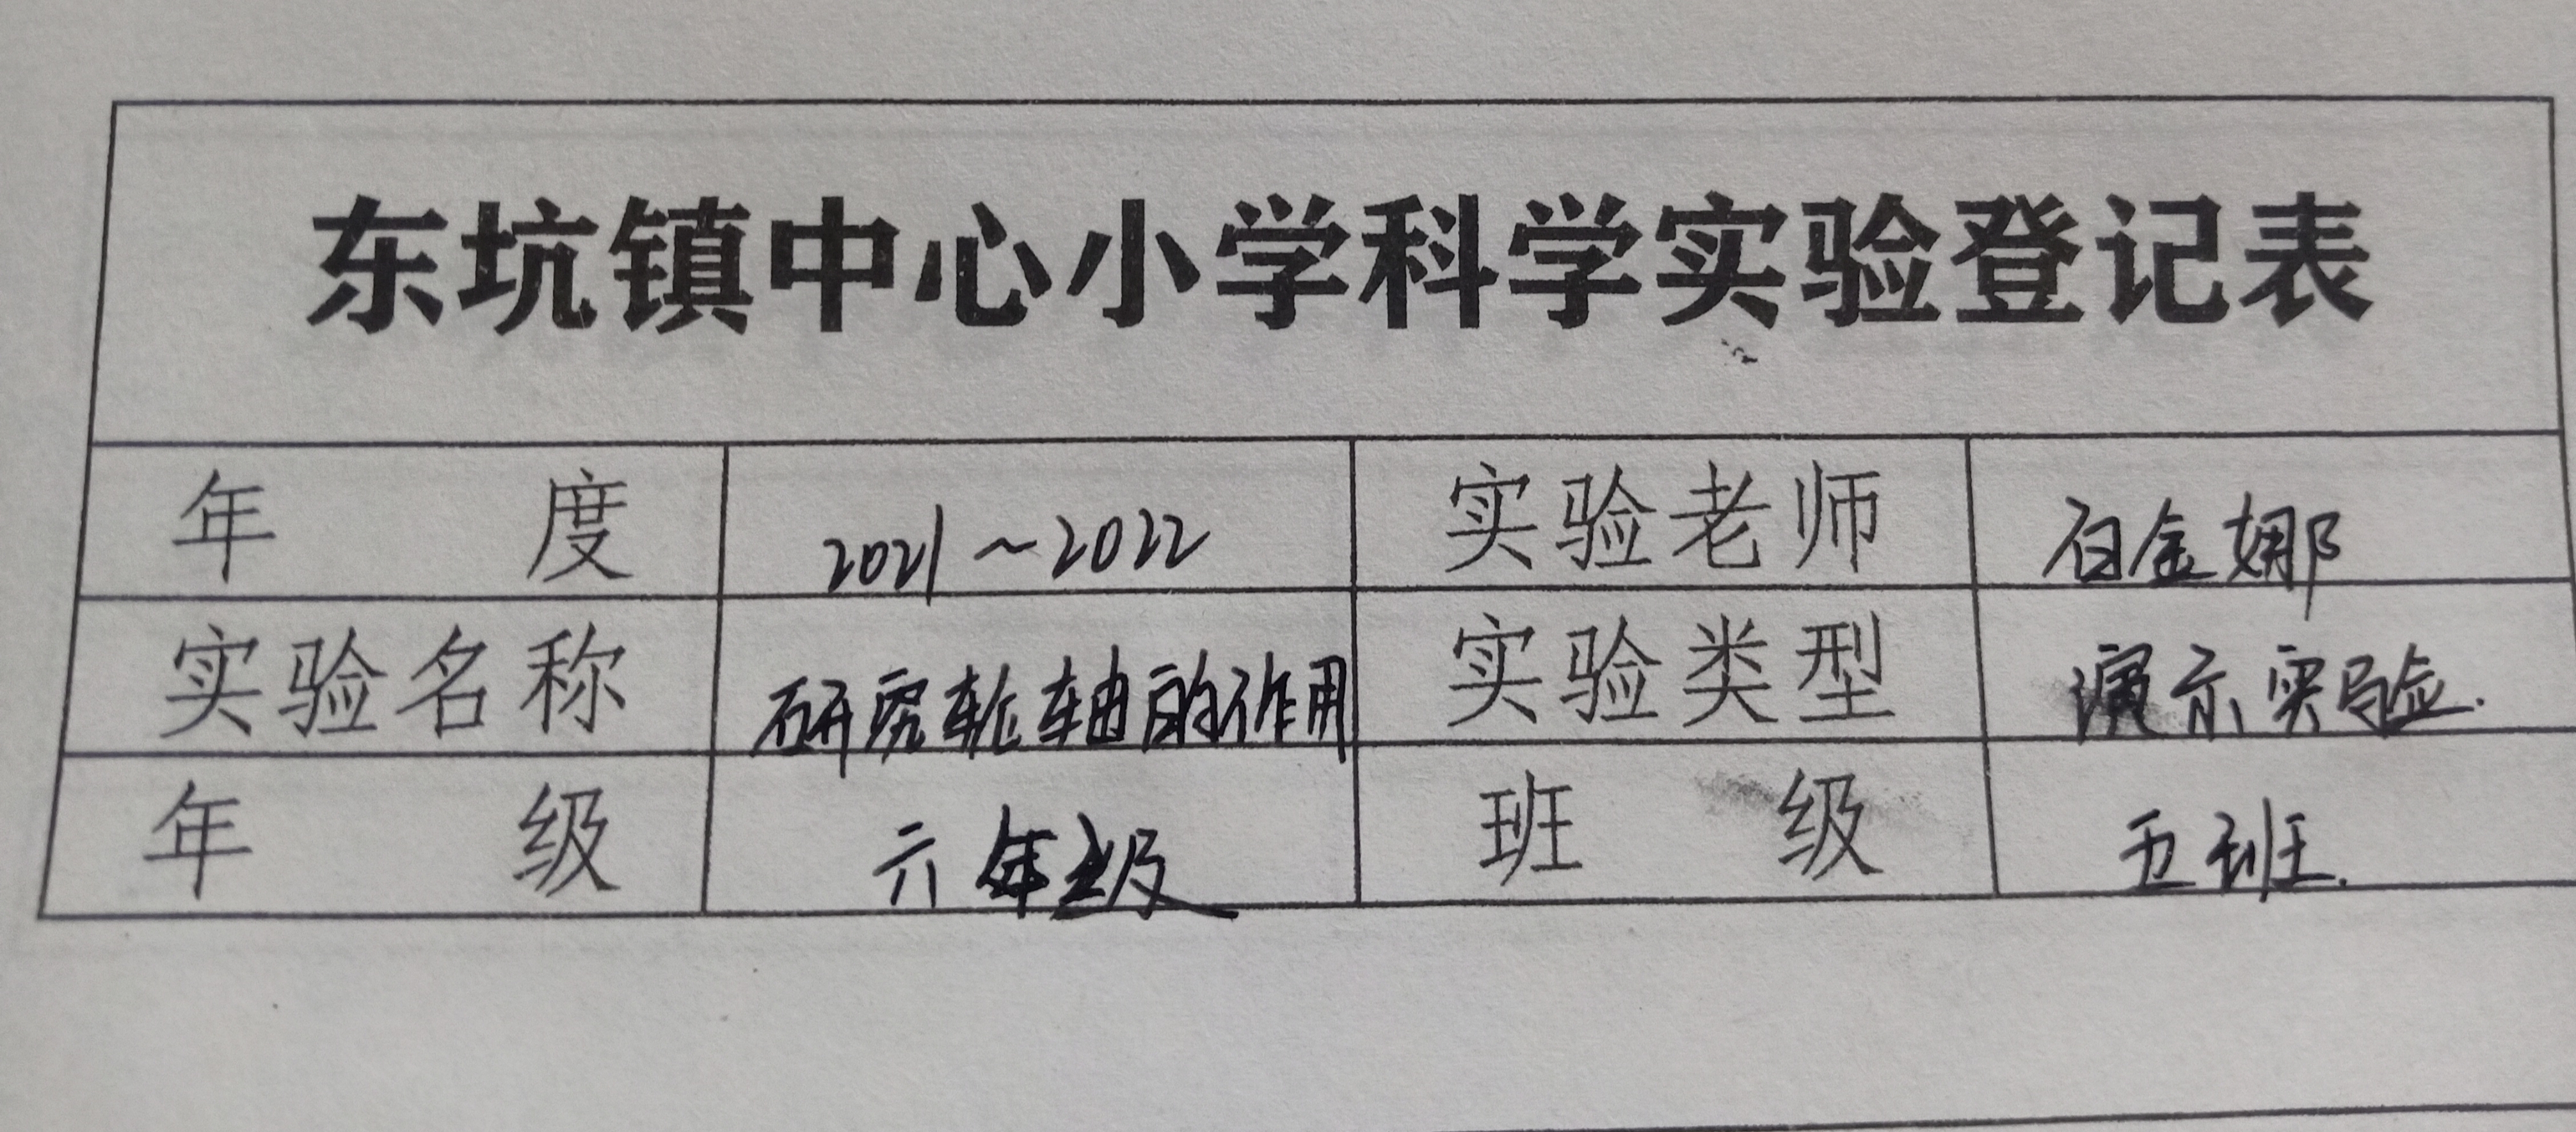 东坑镇中心小学科学实验登记表
年 度 2021~2022 实验老师 白金娜
实验名称 研究轮轴的作用 实验类型 演示实验.
年 级 六年级 班 级 五班.